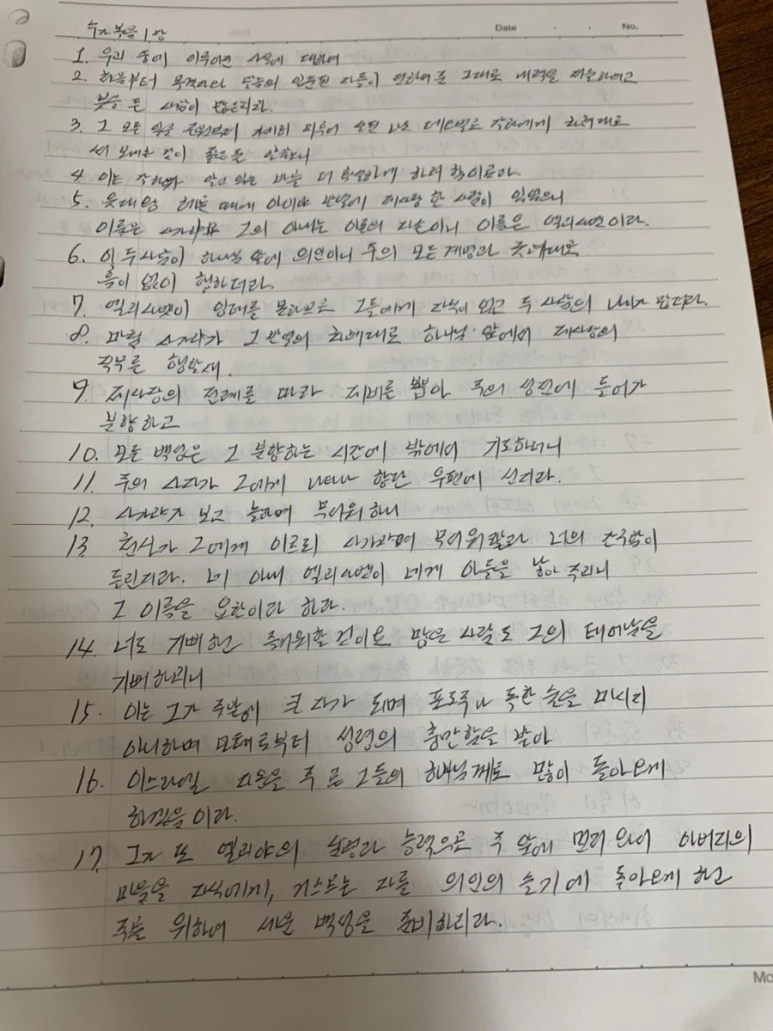 누가복음 1장
Date . . No.
1. 우리 중에 이루어진 사실에 대하여
2. 처음부터 목격자와 말씀의 일꾼된 자들이 전하여 준 그대로 내력을 저술하려고
붓을 든 사람이 많은지라.
3. 그 모든 일을 근원부터 자세히 미루어 살핀 나도 데오빌로 각하에게 차례대로
써 보내는 것이 좋은 줄 알았노니
4. 이는 각하가 알고 있는 바를 더 확실하게 하려 함이로라.
5. 유대 왕 헤롯 때에 아비야 반열에 제사장 한 사람이 있었으니
이름은 사가랴요 그의 아내는 아론의 자손이니 이름은 엘리사벳이라.
6. 이 두 사람이 하나님 앞에 의인이니 주의 모든 계명과 규례대로
흠이 없이 행하더라.
7. 엘리사벳이 잉태를 못하므로 그들에게 자식이 없고 두 사람의 나이가 많더라.
8. 마침 사가랴가 그 반열의 차례대로 하나님 앞에서 제사장의
직무를 행할새.
9. 제사장의 전례를 따라 제비를 뽑아 주의 성전에 들어가
분향하고
10. 모든 백성은 그 분향하는 시간에 밖에서 기도하더니
11. 주의 사자가 그에게 나타나 향단 우편에 선지라.
12. 사가랴가 보고 놀라며 무서워하니
13. 천사가 그에게 이르되 사가랴여 무서워말라 너의 간구함이
들린지라. 네 아내 엘리사벳이 네게 아들을 낳아 주리니
그 이름을 요한이라 하라.
14. 너도 기뻐하고 즐거워할 것이요 많은 사람도 그의 태어남을
기뻐하리니
15. 이는 그가 주앞에 큰 자가 되며 포도주나 독한 술을 마시지
아니하며 모태로부터 성령의 충만함을 받아
16. 이스라엘 자손을 주 곧 그들의 하나님께로 많이 돌아오게
하겠음이라.
17. 그가 또 엘리야의 심령과 능력으로 주 앞에 먼저 와서 아버지의
마음을 자식에게, 거스르는 자를 의인의 슬기에 돌아오게 하고
주를 위하여 세운 백성을 준비하리라.